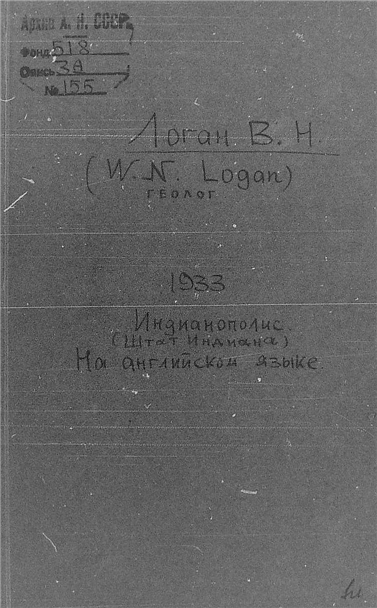 Архив А. Н. СССР
Фонд 518
Опись 3А
№ 155
Логан В. Н.
(W. N. Logan)
ГЕОЛОГ
1933
Индианополис.
(Штат Индиана)
На английском языке.